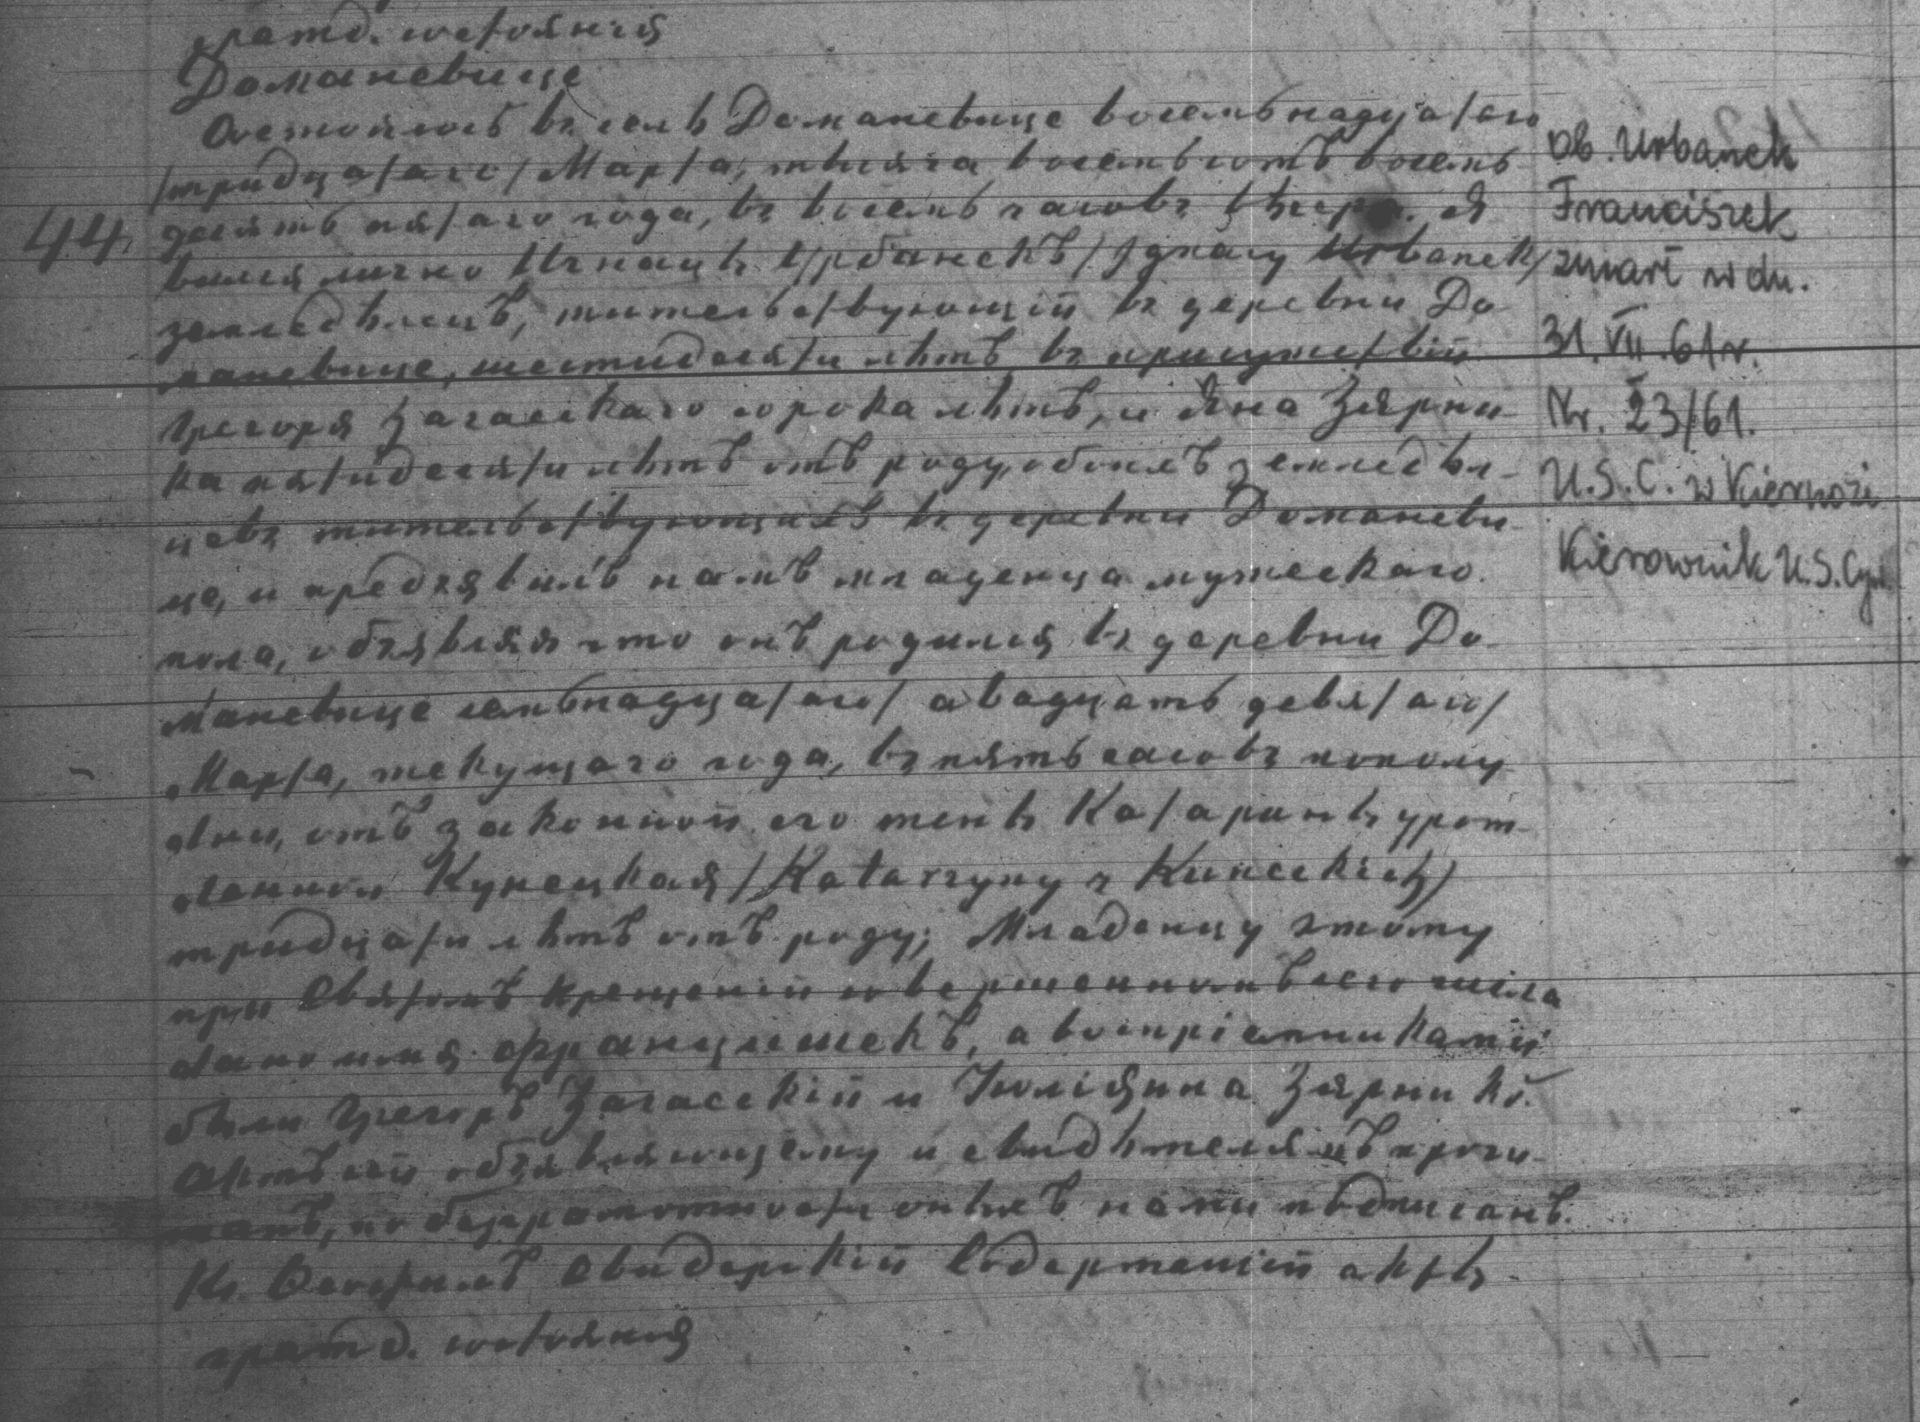 гражд. состоянія
Доманевице
Состоялось въ селѣ Доманевице восемьнадцатаго
/тридцатаго/ Марта, тысяча восемьсотъ восемь-
44. десять пятаго года, въ восемь часовъ вѣчера. Я
вился лично Игнацъ Урбанекъ /Ignacy Urbanek/
земледѣлецъ, жительствующій въ деревни До-
маневице, шестидесяти лѣтъ въ присутствіи
Грегоря Загаескаго сорока лѣтъ, и Яна Зярни-
ка пятидесяти лѣтъ отъ роду, обоихъ земледѣл-
цевъ жительствующихъ въ деревни Доманеви-
це, и предъявилъ намъ младенца мужескаго
пола, объявляя что онъ родился въ деревни До-
маневице семьнадцатаго /двадцать девятаго/
Марта, текущаго года, въ пять часовъ по полу-
дни, отъ законной его жены Катарины урож-
данной Кунецкая /Katarzyny z Kuneckich/
тридцати лѣтъ отъ роду; Младенцу этому
при Святомъ крещеніи совершенномъ сего числа
дано имя Францишекъ, а воспріемниками
были Грегоръ Загаескій и Юліянна Зярникъ.
Актъ сей объявляющему и свидѣтелямъ прочи-
танъ, по безграмотности ихъ нами подписанъ.
Кс. Свидерскій Содержащій актъ
гражд. состоянія
ob. Urbanek
Franciszek
zmarł w dn.
31.VII.61 r.
Nr. 23/61.
U.S.C. w Kiernozi
Kierownik U.S.Cyw.